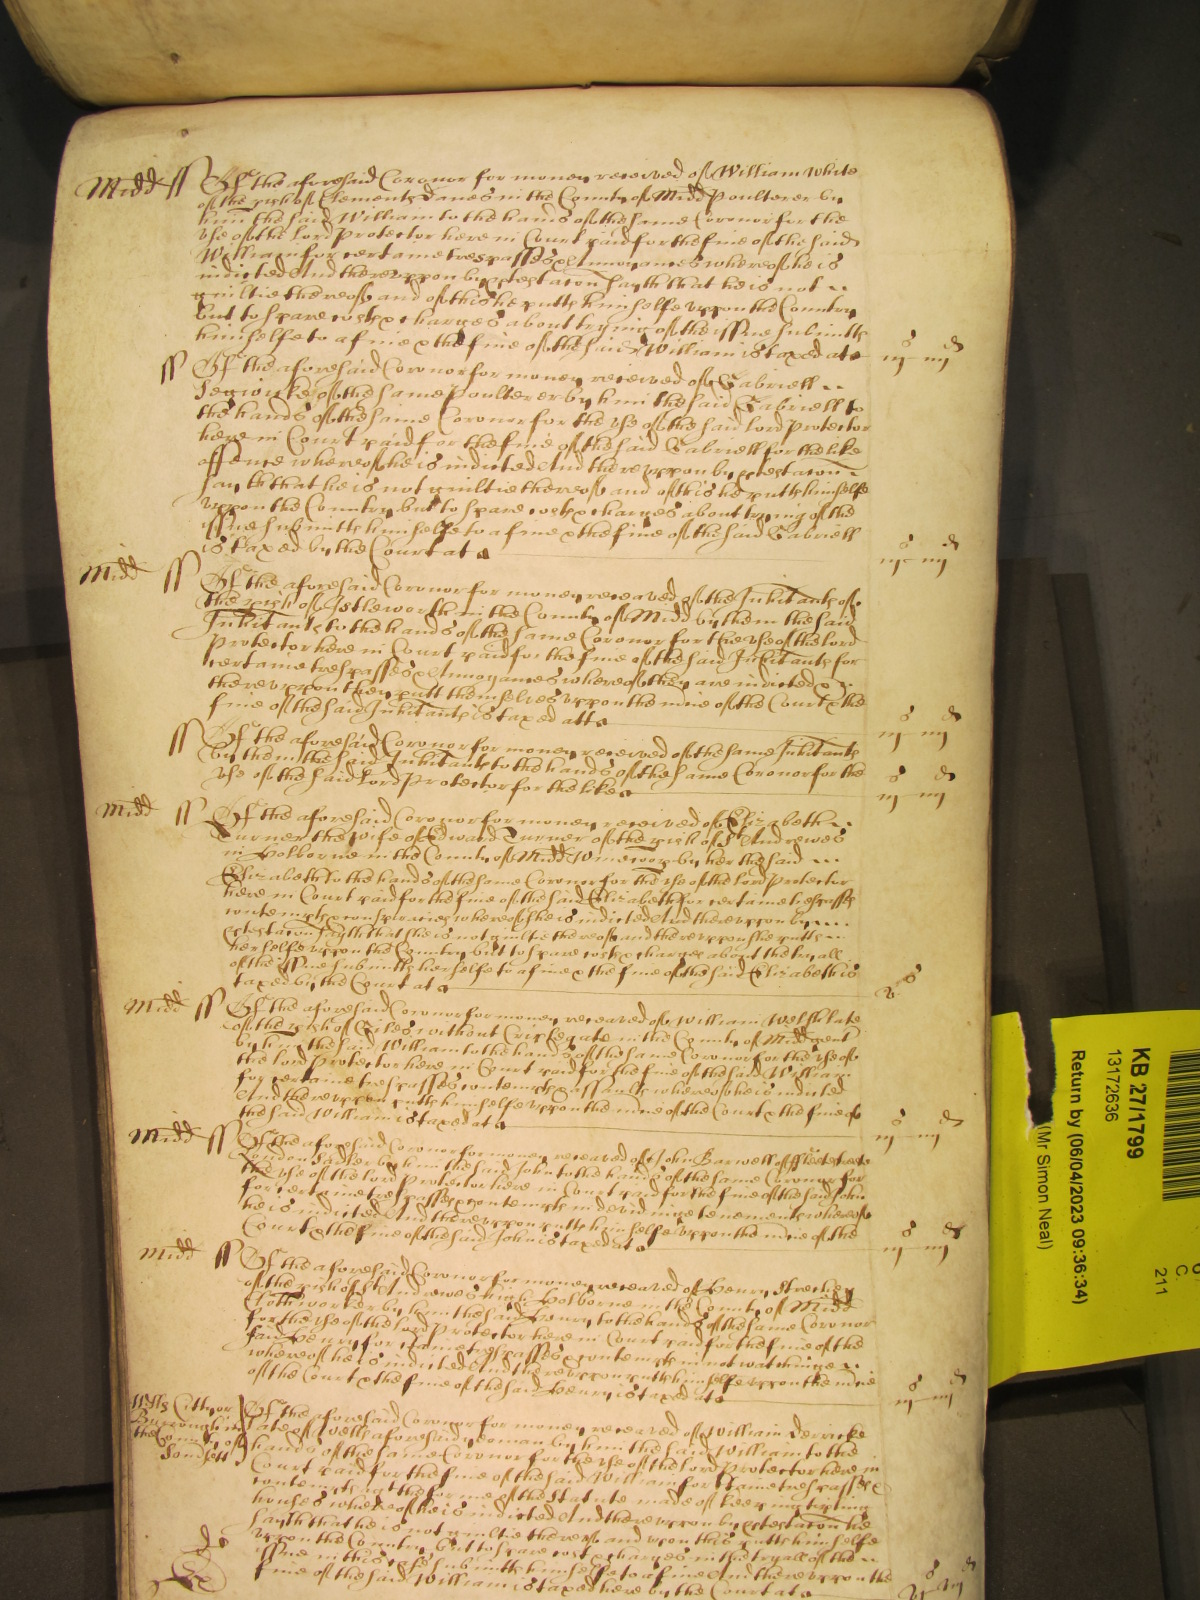 Midd ss Of the aforesaid Coronor for money received of William White
of the pish of Clements Danes in the County of Midd Poulterer by
him the said William to the hands of the same Coronor for the
use of the Lord Protector here in Court paid for the fine of the said
William for certaine trespasses & Annoyances whereof he is
indicted And thereuppon by protestacon sayth that he is not
guiltie thereof and of this he putts himselfe uppon the Country
but to spare costs & charges about trying of the issue submitts
himselfe to a fine & the fine of the said William is taxed at iijs iiijd
ss Of the aforesaid Coronor for money received of Gabriell
of the same Poulterer by him the said Gabriell to
the hands of the same Coronor for the use of the said Lord Protector
here in Court paid for the fine of the said Gabriell for the like
offence whereof he is indicted And thereuppon by protestacon
sayth that he is not guiltie thereof and of this he putts himselfe
uppon the Country but to spare costs & charges about trying of the
issue submitts himselfe to a fine & the fine of the said Gabriell
is taxed by the Court at iijs iiijd
Midd ss Of the aforesaid Coronor for money received of the Inhitants of
the pish of Istleworth in the County of Midd by them the said
Inhitants to the hands of the same Coronor for the use of the Lord
Protector here in Court paid for the fine of the said Inhitants for
certaine trespasses & Annoyances whereof they are indicted &
thereuppon they putt themselves uppon the mine of the Court & the
fine of the said Inhitants is taxed att iijs iiijd
ss Of the aforesaid Coronor for money received of the same Inhitants
by them the said Inhitants to the hands of the same Coronor for the
use of the said Lord Protector for the like iijs iiijd
Midd ss Of the aforesaid Coronor for money received of Elizabeth
Turner the wife of Edward Turner of the pish of St Andrewes
in Holborne in the County of Midd by her the said
Elizabeth to the hands of the same Coronor for the use of the Lord Protector
here in Court paid for the fine of the said Elizabeth for certaine trespasses
contempts & conspiracies whereof she is indicted And thereuppon by
protestacon sayth that she is not guiltie thereof and thereuppon she putts
herselfe uppon the Country but to spare costs & charges about the tryall
of the issue submitts herselfe to a fine & the fine of the said Elizabeth is
taxed by the Court at vs
Midd ss Of the aforesaid Coronor for money received of William Welsh late
of the pish of Giles without Criplegate in the County of Midd gent
by him the said William to the hands of the same Coronor for the use of
the Lord Protector here in Court paid for the fine of the said William
for certaine trespasses contempts & assaults whereof he is indicted
And thereuppon putts himselfe uppon the mine of the Court & the fine of
the said William is taxed at iijs iiijd
Midd ss Of the aforesaid Coronor for money received of John Barwell of Fleetstreete
London by him the said John to the hands of the same Coronor for
the use of the Lord Protector here in Court paid for the fine of the said John
for certaine trespasses & contempts in devideinge tenements whereof
he is indicted And thereuppon putts himselfe uppon the mine of the
Court & the fine of the said John is taxed at iijs iiijd
Midd ss Of the aforesaid Coronor for money received of Henry
of the pish of St Andrewes High Holborne in the County of Midd
Clothworker by him the said Henry to the hands of the same Coronor
for the use of the Lord Protector here in Court paid for the fine of the
said Henry for certaine trespasses & contempts in not watchinge
whereof he is indicted And thereuppon putts himselfe uppon the mine
of the Court & the fine of the said Henry is taxed at iijs iiijd
Wells Citty or Burrough in the County of Somsett Of the aforesaid Coronor for money received of William Derricke
late of Wells aforesaid yeoman by him the said William to the
hands of the same Coronor for the use of the Lord Protector here in
Court paid for the fine of the said William for certaine trespasses &
contempts agt the forme of the Statute made of
houses whereof he is indicted And thereuppon by protestacon he
sayth that he is not guiltie thereof and uppon this putts himselfe
uppon the Country but to spare cost & charges in the tryall of the
issue in this case submitts himselfe to a fine And thereuppon the
fine of the said William is taxed here by the Court at
KB 27/1799
13172636
Return by (06/04/2023 09:36:34)
(Mr Simon Neal)
C.
211